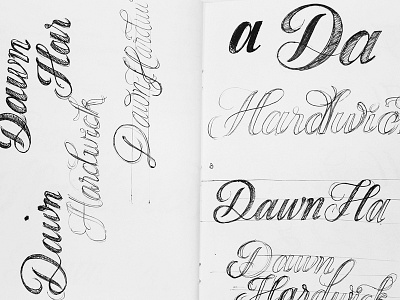 Dawn Hair
Hardwick
Dawn Hardwi
Dawn
a Da
Hardwick
Dawn Ha
Dawn
Hardwick